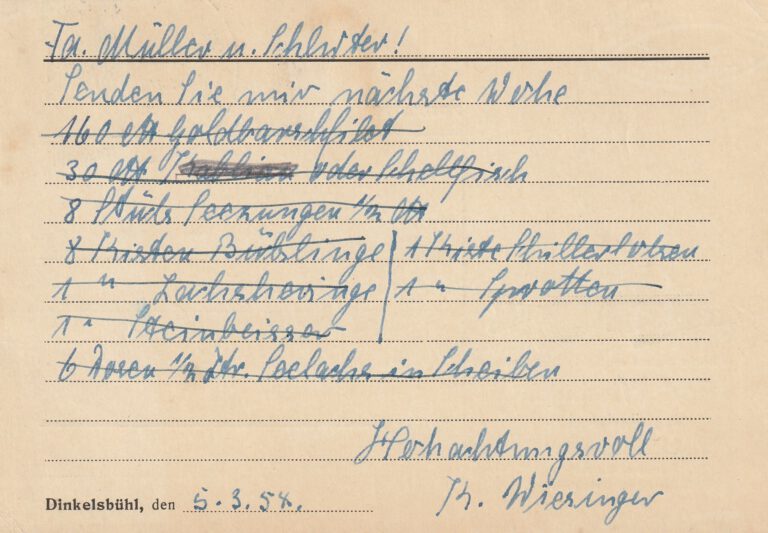 Fa. Müller u. Schlüter!
Senden Sie mir nächste Wohe
160 Goldbarschfilet
30 oder Schellfisch
8 Stück Seezungen 1/2
8 Kisten Büklinge 1 Kiste Schillerloken
1 " Lachsheringe 1 " Sprotten
1 " Steinbeisser
6 Dosen 1/2 Ltr. Seelachs in Scheiben
Hohachtungsvoll
K. Wiesinger
Dinkelsbühl, den 5.3.58.